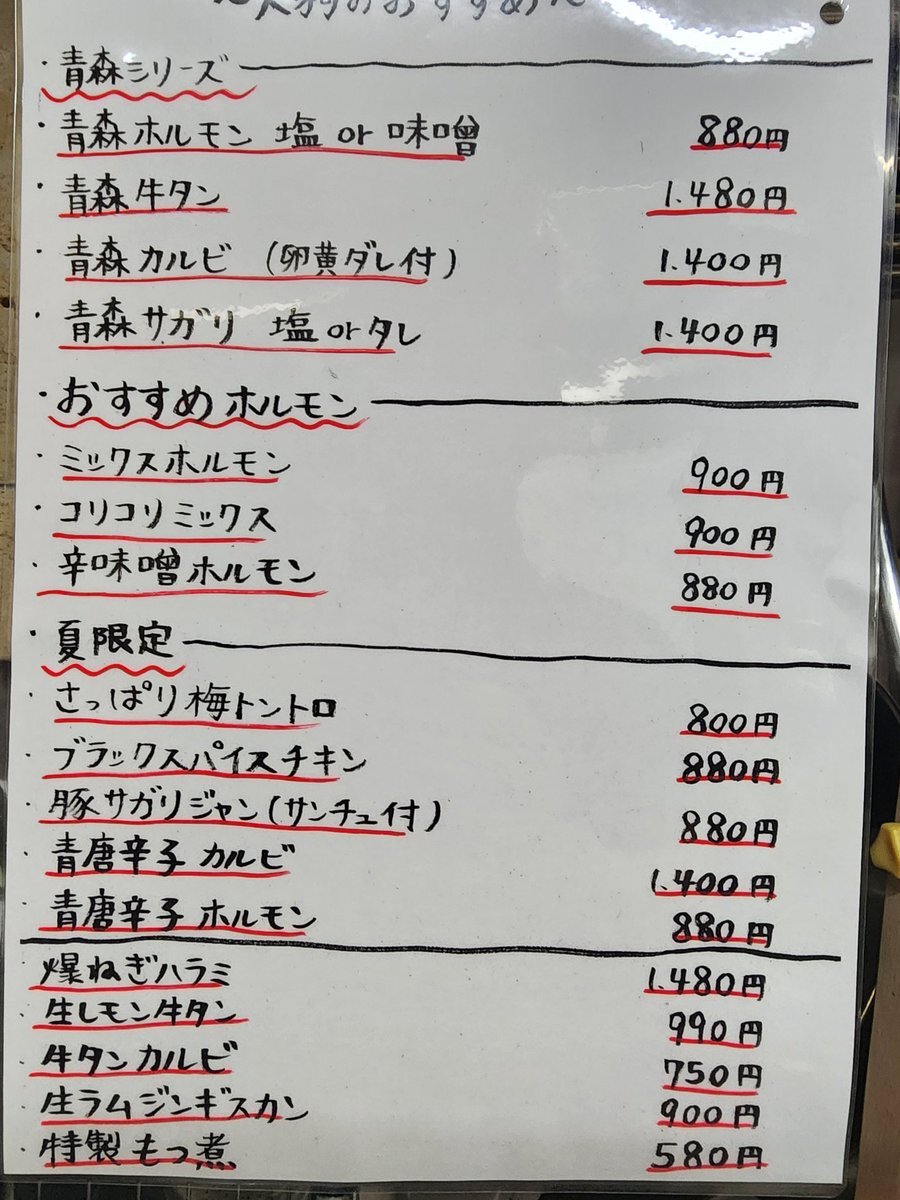 のおすすめ
・青森シリーズ
・青森ホルモン 塩 or 味噌 880円
・青森牛タン 1.480円
・青森カルビ (卵黄ダレ付) 1.400円
・青森サガリ 塩 or タレ 1.400円
・おすすめホルモン
・ミックスホルモン 900円
・コリコリミックス 900円
・辛味噌ホルモン 880円
・夏限定
・さっぱり梅トントロ 800円
・ブラックスパイスチキン 880円
・豚サガリジャン(サンチュ付) 880円
・青唐辛子カルビ 1.400円
・青唐辛子ホルモン 880円
・爆ねぎハラミ 1.480円
・生レモン牛タン 990円
・牛タンカルビ 750円
・生ラムジンギスカン 900円
・特製もつ煮 580円